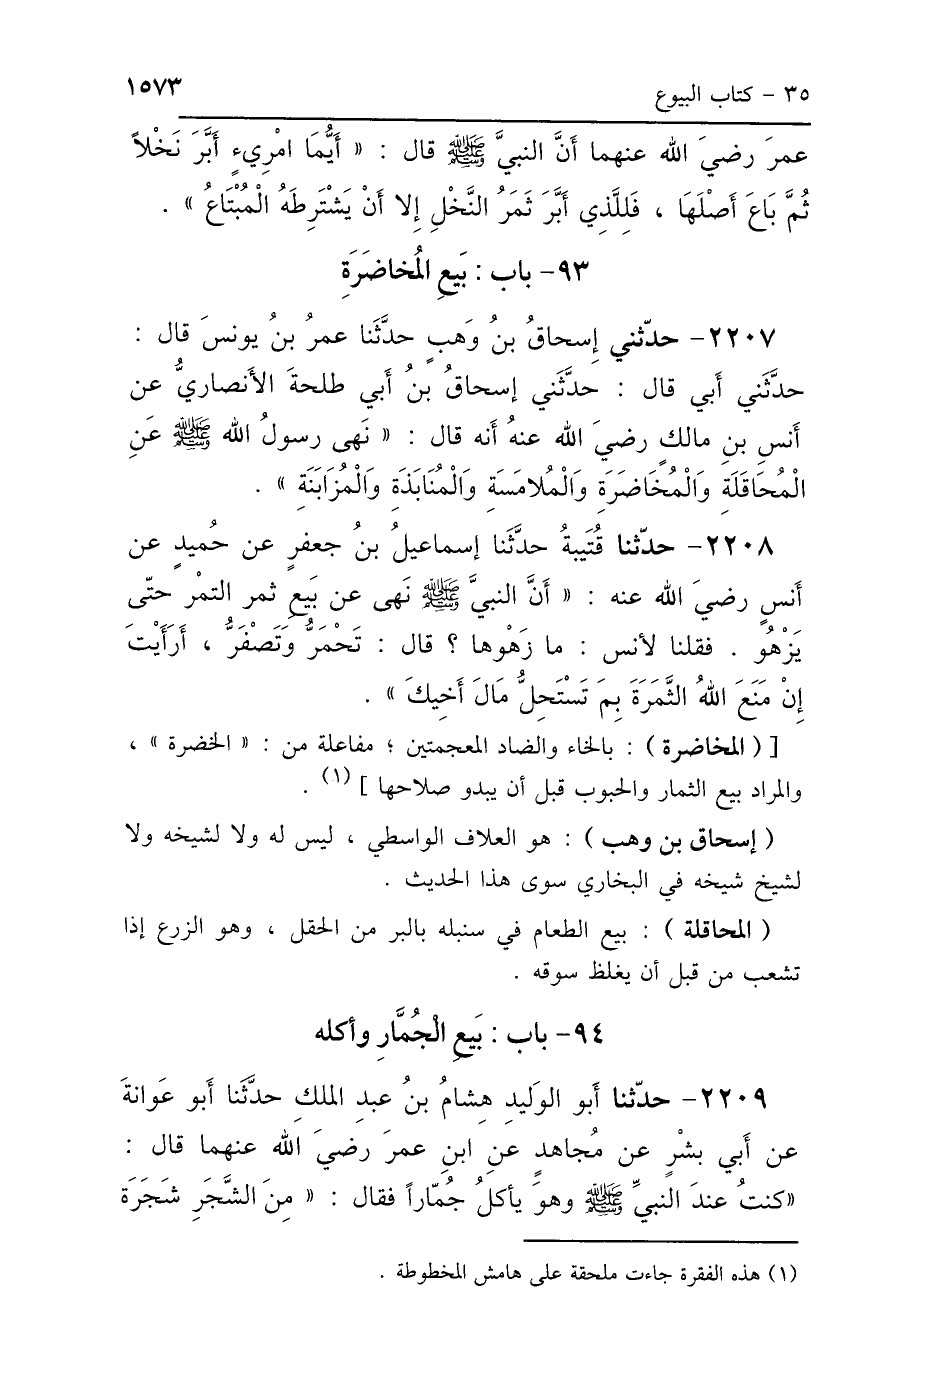 ٣٥ - كتاب البيوع ١٥٧٣
عمرَ رضيَ الله عنهما أنَّ النبيَّ ﷺ قال : « أَيُّمَا امْرِيءٍ أَبَّرَ نَخْلاً
ثُمَّ بَاعَ أَصْلَهَا ، فَلِلَّذِي أَبَّرَ ثَمَرُ النَّخْلِ إِلا أَنْ يَشْتَرِطَهُ الْمُبْتَاعُ » .
٩٣- باب : بَيعِ المُخاضَرَةِ
٢٢٠٧- حدّثني إِسحاقُ بنُ وَهبٍ حدَّثَنا عمرُ بنُ يونسَ قال :
حدَّثَني أبي قال : حدَّثَني إسحاقُ بنُ أبي طلحةَ الأنصاريُّ عن
أنسِ بنِ مالكٍ رضيَ الله عنهُ أنه قال : « نَهى رسولُ الله ﷺ عَنِ
الْمُحَاقَلَةِ وَالْمُخَاضَرَةِ وَالْمُلامَسَةِ وَالْمُنَابَذَةِ وَالْمُزَابَنَةِ » .
٢٢٠٨- حدّثنا قُتَيبةُ حدَّثَنا إسماعيلُ بنُ جعفرٍ عن حُميدٍ عن
أنسٍ رضيَ الله عنه : « أنَّ النبيَّ ﷺ نَهى عن بَيعِ ثمر التمْر حتّى
يَزْهُوَ . فقلنا لأنس : ما زَهْوها ؟ قال : تَحْمَرُّ وَتَصْفَرُّ ، أَرَأَيْتَ
إِنْ مَنَعَ اللهُ الثَّمَرَةَ بِمَ تَسْتَحِلُّ مَالَ أَخِيكَ » .
[ ( المخاضرة ) : بالخاء والضاد المعجمتين ؛ مفاعلة من : « الخضرة » ،
والمراد بيع الثمار والحبوب قبل أن يبدو صلاحها ] (١) .
( إسحاق بن وهب ) : هو العلاف الواسطي ، ليس له ولا لشيخه ولا
لشيخ شيخه في البخاري سوى هذا الحديث .
( المحاقلة ) : بيع الطعام في سنبله بالبر من الحقل ، وهو الزرع إذا
تشعب من قبل أن يغلظ سوقه .
٩٤- باب : بَيعِ الْجُمَّارِ وأكله
٢٢٠٩- حدّثنا أبو الوَليدِ هِشامُ بنُ عبدِ الملكِ حدَّثَنا أبو عَوانةَ
عن أَبي بشْرٍ عن مُجاهدٍ عنِ ابنِ عمرَ رضيَ الله عنهما قال :
«كنتُ عندَ النبيِّ ﷺ وهوَ يأكلُ جُمّاراً فقال : « مِنَ الشَّجَرِ شَجَرَة
(١) هذه الفقرة جاءت ملحقة على هامش المخطوطة .